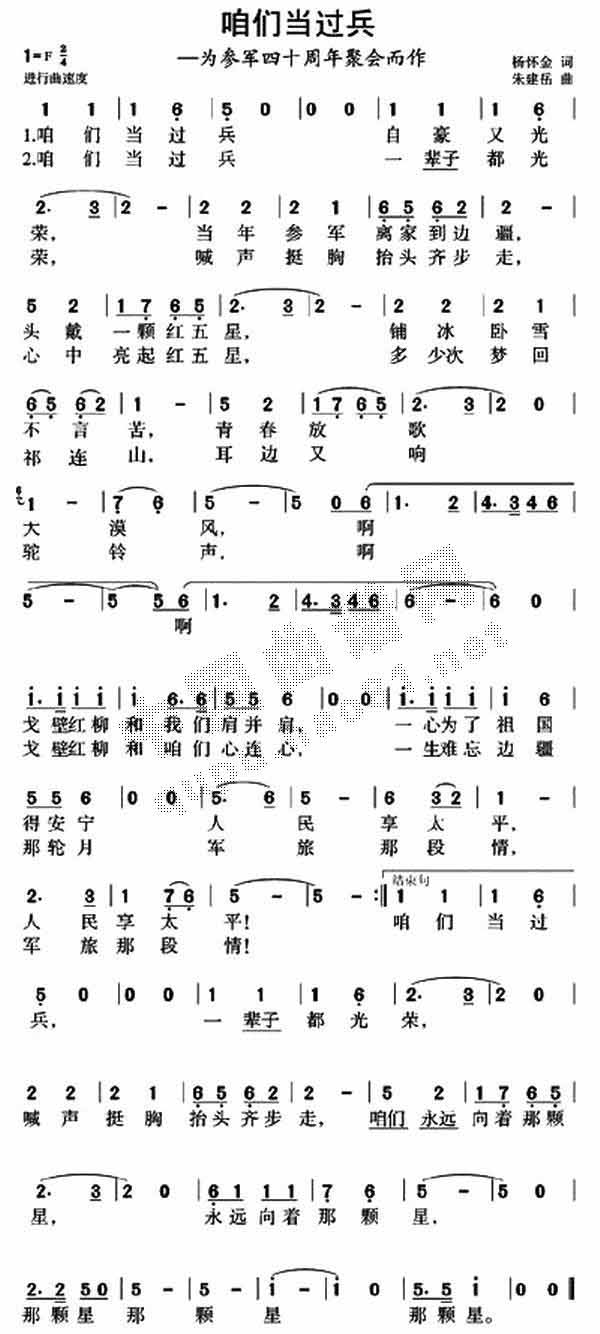 咱们当过兵
—为参军四十周年聚会而作
1=F 2/4
进行曲速度
杨怀金 词
朱建岳 曲
1 1 | 1 6 | 5 0 | 0 0 | 1 1 | 1 6 |
1.咱 们 当 过 兵 自 豪 又 光
2.咱 们 当 过 兵 一 辈子 都 光
2· 3 | 2 - | 2 2 | 2 1 | 6 5 6 2 | 2 - |
荣, 当 年 参 军 离 家 到 边 疆,
荣, 喊 声 挺 胸 抬 头 齐 步 走,
5 2 | 1 7 6 5 | 2· 3 | 2 - | 2 2 | 2 1 |
头 戴 一 颗 红 五 星, 铺 冰 卧 雪
心 中 亮 起 红 五 星, 多 少次 梦 回
6 5 6 2 | 1 - | 5 2 | 1 7 6 5 | 2· 3 | 2 0 |
不 言 苦, 青 春 放 歌
祁 连 山, 耳 边 又 响
6 1 - | 7 6 | 5 - | 5 0 6 | 1· 2 | 4· 3 4 6 |
大 漠 风, 啊
驼 铃 声, 啊
5 - | 5 5 6 | 1· 2 | 4· 3 4 6 | 6 - | 6 0 |
啊
i· i i i | i 6· 6 | 5 5 5 | 0 0 | i· i i i | i 6 |
戈 壁 红 柳 和 我 们 肩 并 肩, 一 心 为 了 祖 国
戈 壁 红 柳 和 咱 们 心 连 心, 一 生 难 忘 边 疆
5 5 6 | 0 0 | 5· 6 | 5 - | 6 3 2 | 1 - |
得 安 宁 人 民 享 太 平,
那 轮 月 军 旅 那 段 情,
2· 3 | 1 7 6 | 5 - | 5 - :‖ 结束句 1 1 | 1 6 |
人 民 享 太 平! 咱 们 当 过
军 旅 那 段 情!
5 0 | 0 0 | 1 1 | 1 6 | 2· 3 | 2 0 |
兵, 一 辈子 都 光 荣,
2 2 | 2 1 | 6 5 6 2 | 2 - | 2 1 7 6 5 |
喊 声 挺 胸 抬 头 齐 步 走, 咱们 永远 向着 那颗
2· 3 | 2 0 | 6 1 1 1 1 | 7 6 | 5 - | 5 0 |
星, 永 远 向 着 那 颗 星,
2· 2 5 0 | 5 - | 5 - | i - | i 0 | 5· 5 i 0 ‖
那 颗 星 那 颗 星 那 颗 星。